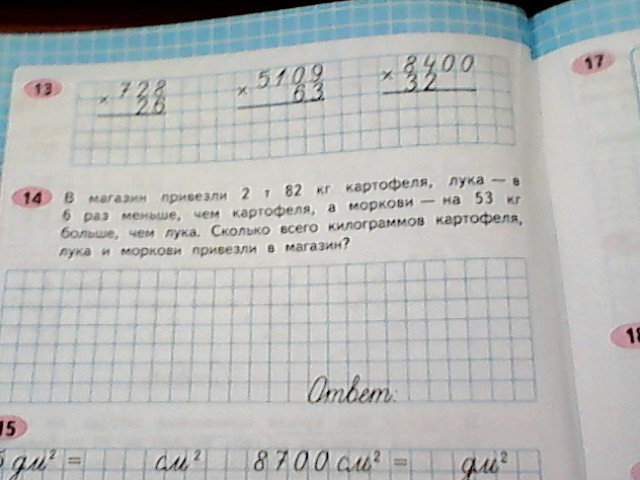 13
× 728
26
× 5109
63
× 8400
32
17
14 В магазин привезли 2 т 82 кг картофеля, лука — в
6 раз меньше, чем картофеля, а моркови — на 53 кг
больше, чем лука. Сколько всего килограммов картофеля,
лука и моркови привезли в магазин?
Ответ:
15
дм² = см² 8700 см² = дм²